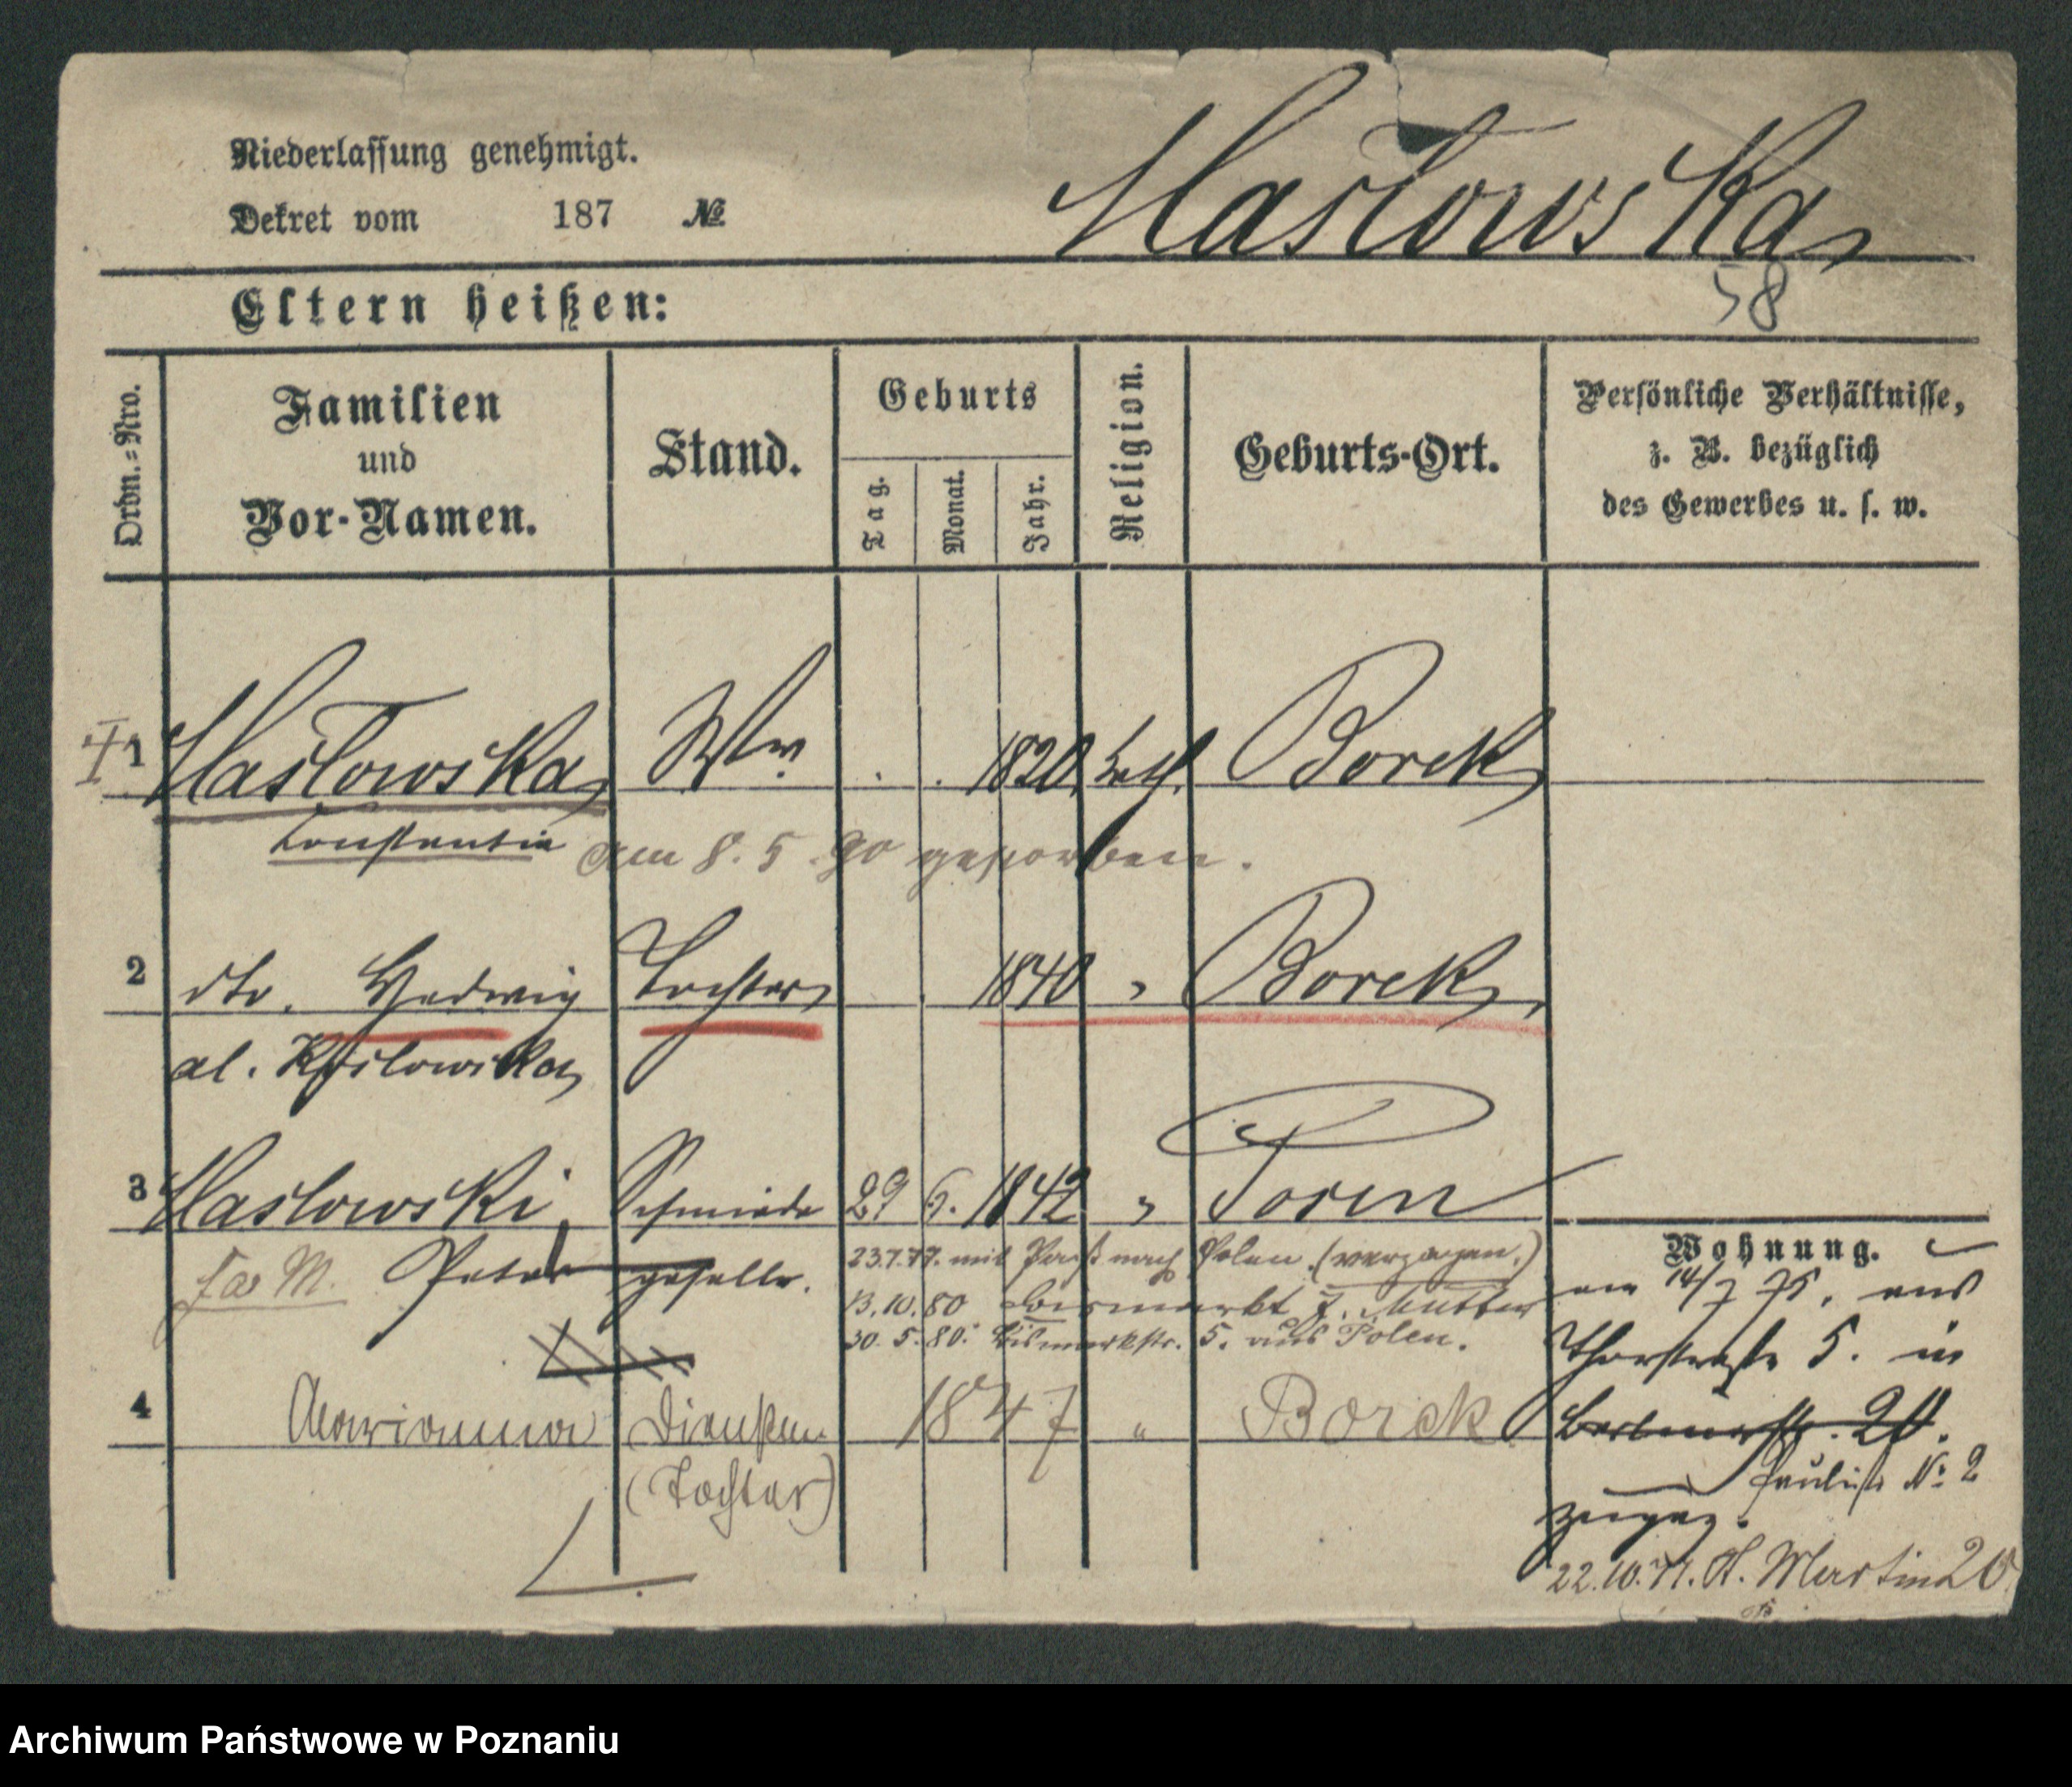 Niederlassung genehmigt.
Dekret vom 187 №
Masłowska
58
Eltern heißen:
Ordn.=Nro.
Familien
und
Vor-Namen.
Stand.
Geburts
Tag.
Monat.
Jahr.
Religion.
Geburts-Ort.
Persönliche Verhältnisse,
z. B. bezüglich
des Gewerbes u. s. w.
1 Masłowska Ww. 1820. kath. Borek
Konstantia am 8. 5. 90 gestorben.
2 dto. Hedwig Tochter 1840 " Borek
al.
3 Maslowski, Schmiede 29 6. 1842 " Posen
Peter geselle.
23.7.77. mit Paß nach Polen. (verzogen.)
13.10.80 z. Mutter
30. 5. 80. Bismarkstr. 5. aus Polen.
4 Marianna 1847 " Borek
(Tochter)
Wohnung.
am 14/7 75. aus
Thorstraße 5. in
20.
Paulist № 2
zugez.
22.10.77. St. Martin 20
Archiwum Państwowe w Poznaniu